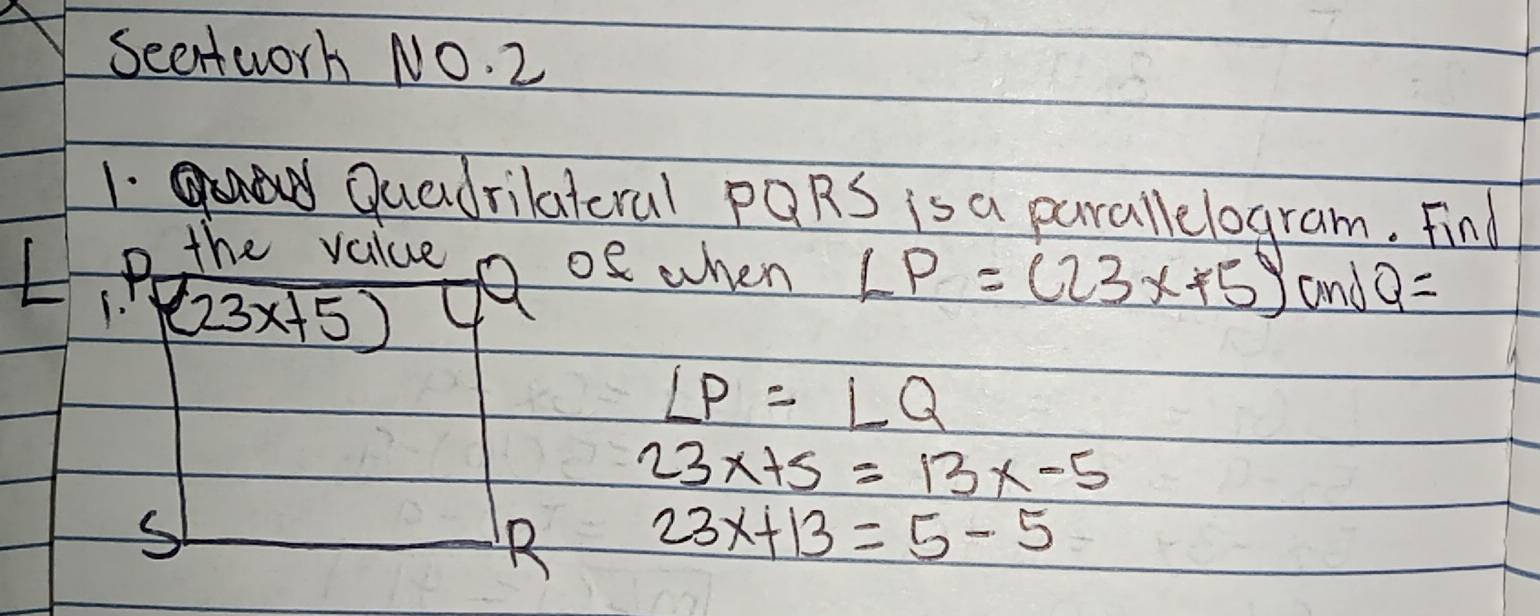 Seertwork NO.2
1. Quadrilateral PQRS is a parallelogram. Find
the value of when LP = (23x+5) and Q=
L P Q
1. (23x+5)
LP = LQ
23x+5 = 13x-5
23x+13 = 5-5
S R